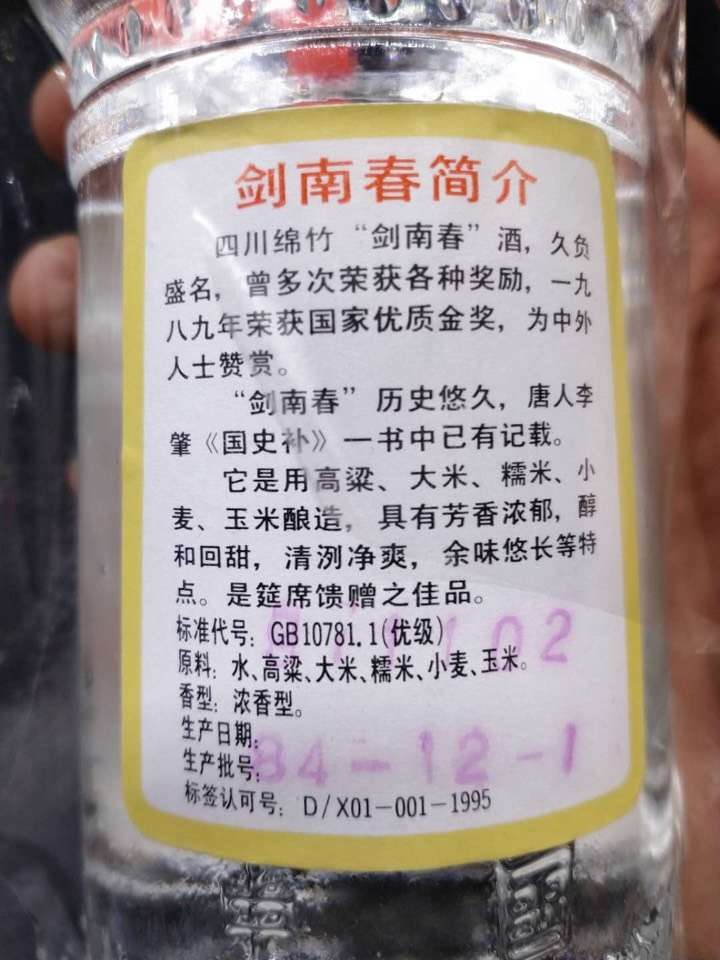 剑南春简介
四川绵竹“剑南春”酒，久负
盛名，曾多次荣获各种奖励，一九
八九年荣获国家优质金奖，为中外
人士赞赏。
“剑南春”历史悠久，唐人李
肇《国史补》一书中已有记载。
它是用高粱、大米、糯米、小
麦、玉米酿造，具有芳香浓郁，醇
和回甜，清洌净爽，余味悠长等特
点。是筵席馈赠之佳品。
标准代号：GB10781.1(优级)
原料：水、高粱、大米、糯米、小麦、玉米。
香型：浓香型。
生产日期：
生产批号：
84-12-1
标签认可号：D/X01-001-1995